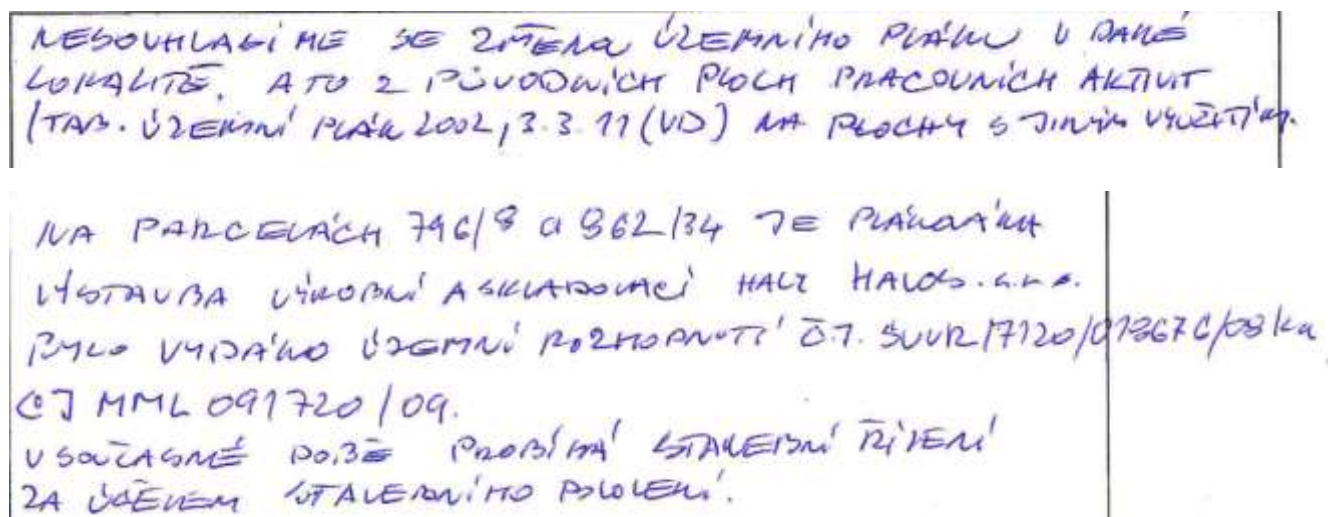 NESOUHLASÍME SE ZMĚNOU ÚZEMNÍHO PLÁNU V DANÉ
LOKALITĚ. A TO Z PŮVODNÍCH PLOCH PRACOVNÍCH AKTIVIT
(TAB. ÚZEMNÍ PLÁN 2002, 3.3.11 (VD) NA PLOCHY S JINÝM VYUŽITÍM.
NA PARCELÁCH 796/8 a 862/34 JE PLÁNOVÁNA
VÝSTAVBA VÝROBNÍ A SKLADOVACÍ HALY s.r.o.
BYLO VYDÁNO ÚZEMNÍ ROZHODNUTÍ Č.J. SUUR/7120/
CJ MML 091720/09.
V SOUČASNÉ DOBĚ PROBÍHÁ STAVEBNÍ ŘÍZENÍ
ZA ÚČELEM STAVEBNÍHO POVOLENÍ.